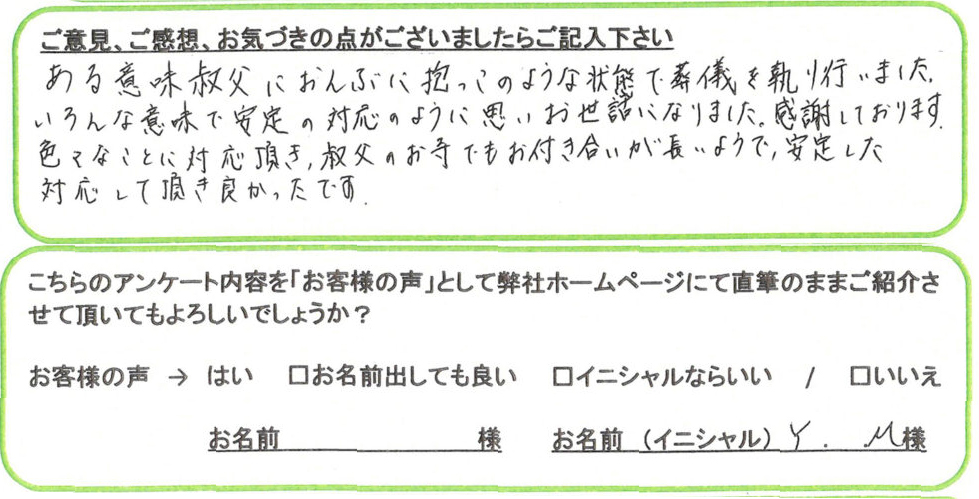 ご意見、ご感想、お気づきの点がございましたらご記入下さい
ある意味叔父におんぶに抱っこのような状態で葬儀を執り行いました。
いろんな意味で安定の対応のように思いお世話になりました。感謝しております。
色々なことに対応頂き、叔父のお寺でもお付き合いが長いようで、安定した
対応して頂き良かったです。
こちらのアンケート内容を「お客様の声」として弊社ホームページにて直筆のままご紹介さ
せて頂いてもよろしいでしょうか？
お客様の声 → はい □お名前出しても良い □イニシャルならいい / □いいえ
お名前 様 お名前 （イニシャル） Y. M 様